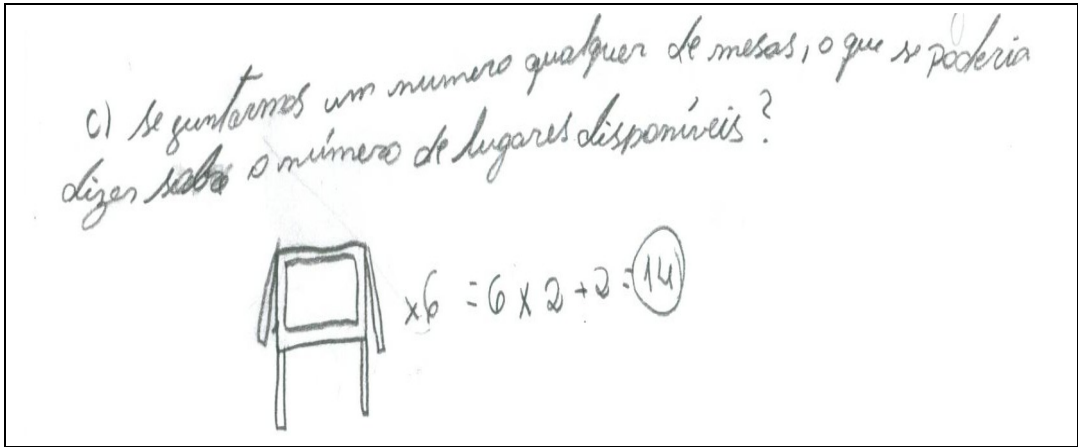 c) se guntarmos um numero qualquer de mesas, o que se poderia
dizer sobre o número de lugares disponíveis?
x6 = 6 x 2 + 2 = 14